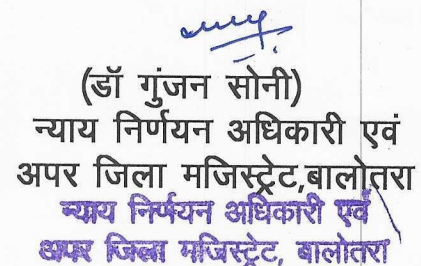 (डॉ गुंजन सोनी)
न्याय निर्णयन अधिकारी एवं
अपर जिला मजिस्ट्रेट,बालोतरा
न्याय निर्णयन अधिकारी एवं
अपर जिला मजिस्ट्रेट, बालोतरा